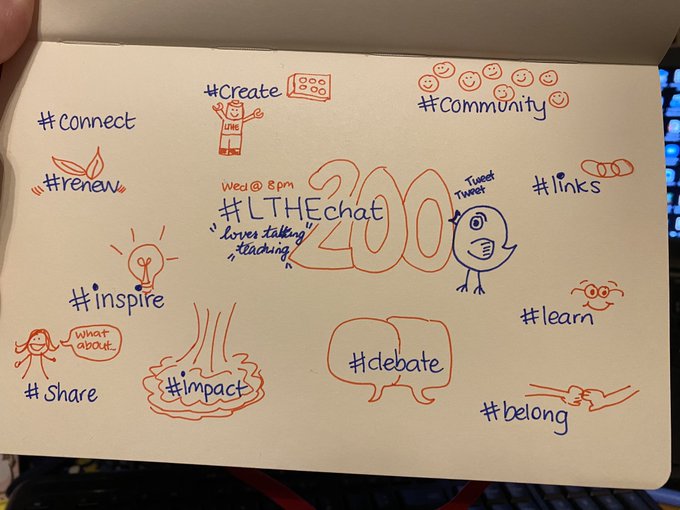 #Create
#community
#connect
#renew
Wed @ 8pm
200
#LTHEchat
"loves talking
"teaching"
Tweet
Tweet
#links
#inspire
#learn
what
about...
#share
#impact
#debate
#belong
LTHE